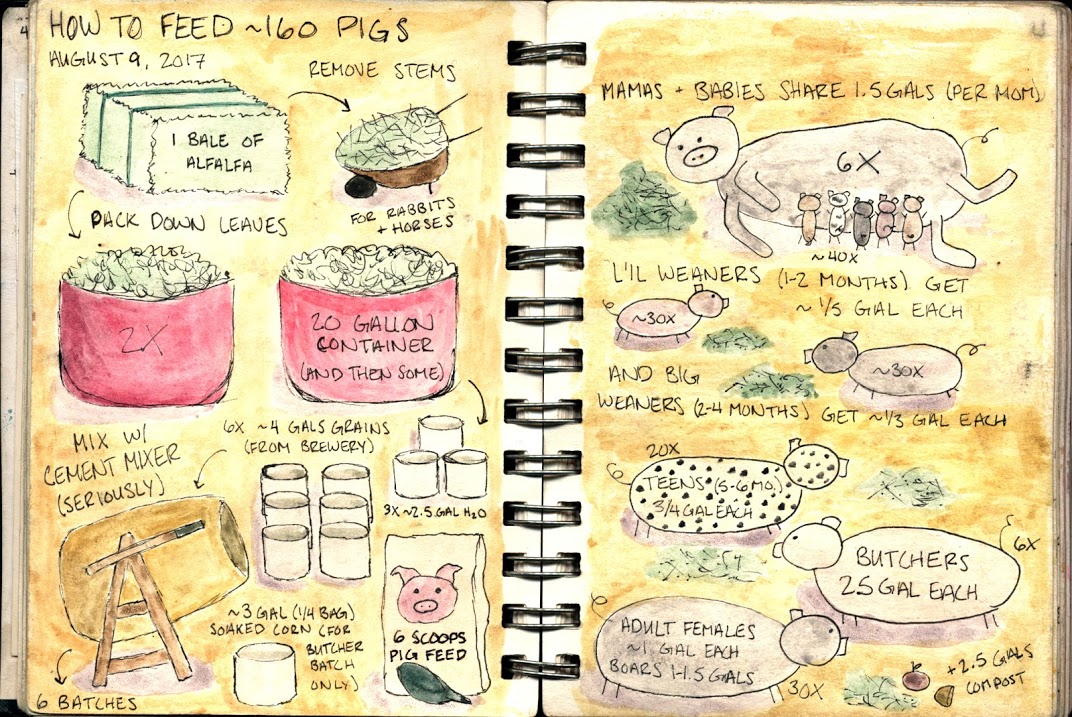 HOW TO FEED ~160 PIGS
AUGUST 9, 2017
REMOVE STEMS
1 BALE OF
ALFALFA
FOR RABBITS
+ HORSES
PACK DOWN LEAVES
2X
20 GALLON
CONTAINER
(AND THEN SOME)
MIX W/
CEMENT MIXER
(SERIOUSLY)
6X ~4 GALS GRAINS
(FROM BREWERY)
3X ~2.5 GAL H2O
~3 GAL (1/4 BAG)
SOAKED CORN (FOR
BUTCHER
BATCH
ONLY)
6 SCOOPS
PIG FEED
6 BATCHES
MAMAS + BABIES SHARE 1.5 GALS (PER MOM)
6X
~40X
L'IL WEANERS (1-2 MONTHS) GET
~ 1/5 GAL EACH
~30X
~30X
AND BIG
WEANERS (2-4 MONTHS) GET ~1/3 GAL EACH
20X
TEENS (5-6 MO.)
3/4 GAL EACH
BUTCHERS
2.5 GAL EACH
6X
ADULT FEMALES
~1 GAL EACH
BOARS 1-1.5 GALS
30X
+ 2.5 GALS
COMPOST